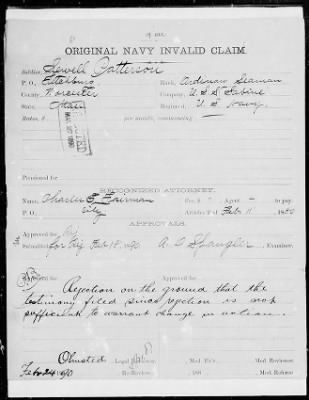 ORIGINAL NAVY INVALID CLAIM.
Soldier, Sewell Patterson
P. O., Fitchburg Rank, Ordinary Seaman
County, Worcester Company, U. S. S. Sabine
State, Mass Regiment, U. S. Navy
Rate, $ per month, commencing
Pensioned for
RECOGNIZED ATTORNEY.
Name, Charles E. Fairman Fee, $ Agent to pay.
P. O., City Articles filed Feb 11, 1890
APPROVALS.
Submitted for Rej Feb 18, 1890 A. D. Spangler, Examiner.
Approved for Approved for
Rejection on the ground that the
testimony filed since rejection is not
sufficient to warrant change in action.
Olmsted Legal Reviewer. Med. Ex'r. Med. Reviewer.
Feb 24 90 Re-Reviewer. 188 Med. Referee